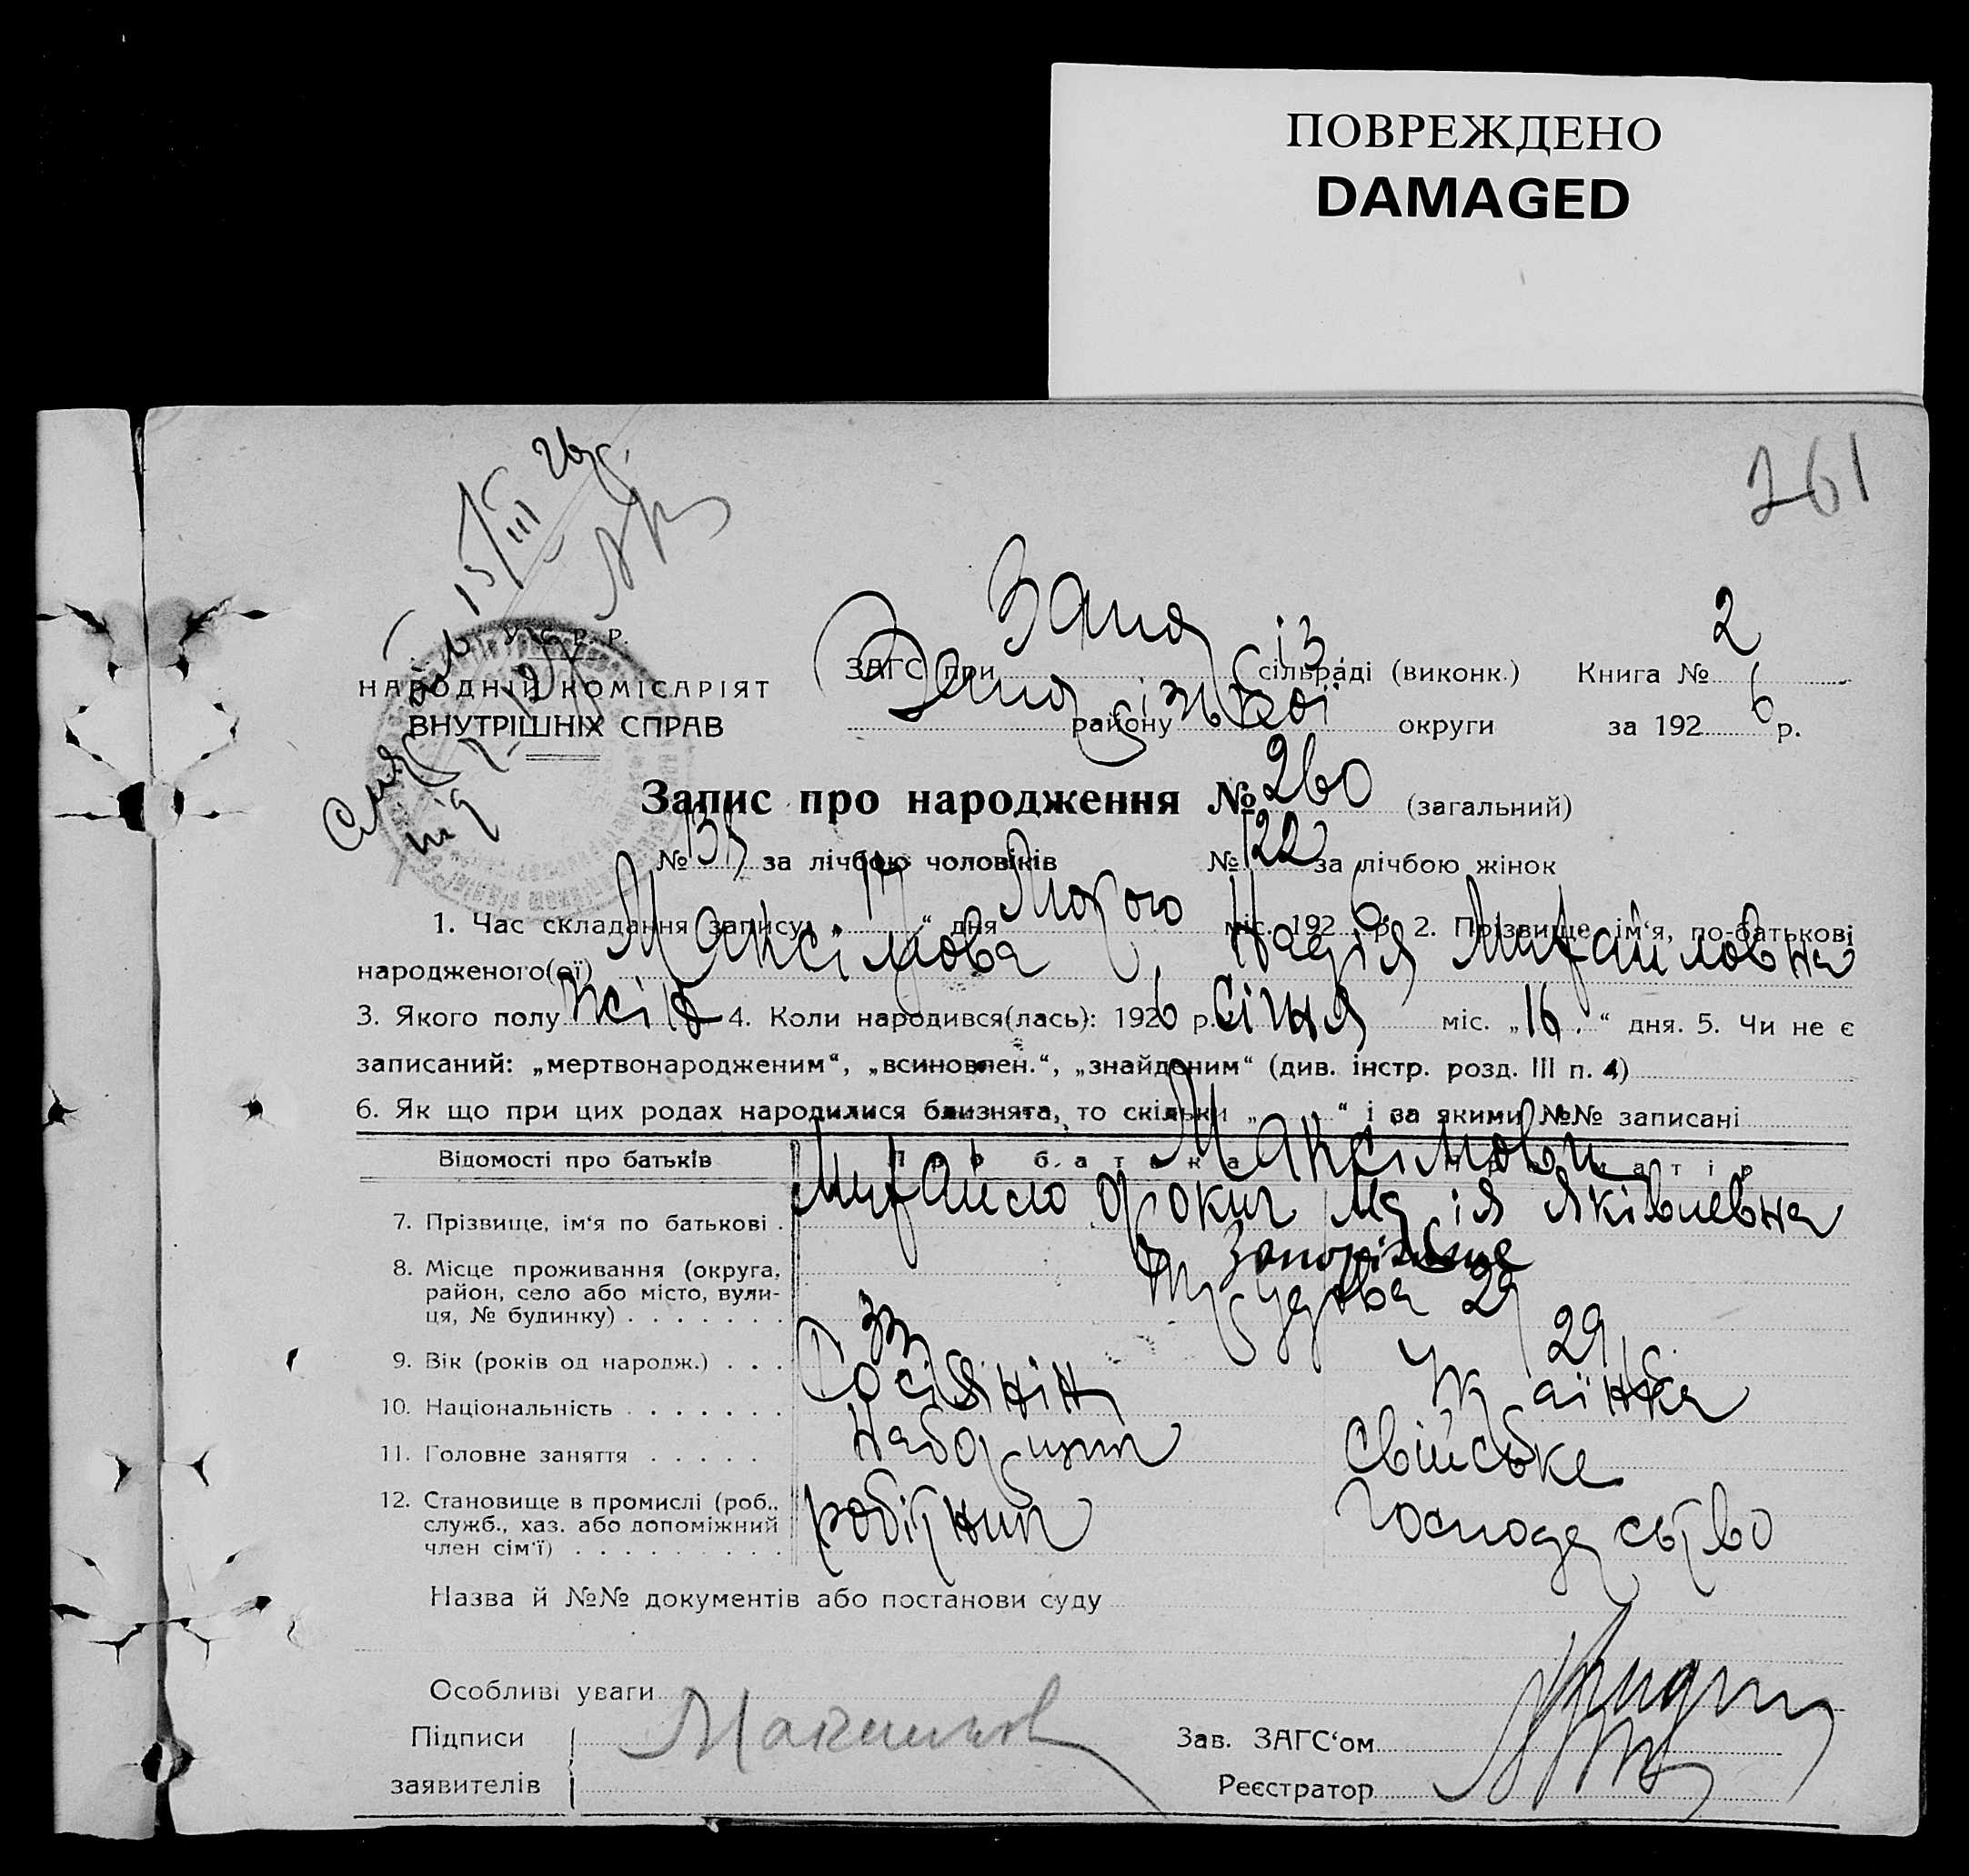 ПОВРЕЖДЕНО
DAMAGED
261
15/III 26 р.
У. С. Р. Р.
НАРОДНІЙ КОМІСАРІЯТ
ВНУТРІШНІХ СПРАВ
Запо
ЗАГС при сільраді (виконк.) Книга № 2
району округи за 1926 р.
Запис про народження № 260 (загальний)
№ за лічбою чоловіків № 122 за лічбою жінок
1. Час складання запису: „ “ дня Лютого міс. 1926 р. 2. Прізвище, ім‘я, по-батькові
народженого(ої) Максімова Надія Михайловна
3. Якого полу жін 4. Коли народився(лась): 1926 р. Січня міс. „16“ дня. 5. Чи не є
записаний: „мертвонародженим“, „всиновлен.“, „знайденим“ (див. інстр. розд. III п. 4)
6. Як що при цих родах народилися близнята, то скільки „ “ і за якими №№ записані
Відомості про батьків Про батька Про матір
Максімови
7. Прізвище, ім‘я по батькові . Михайло Фокич Марія Яківлевна
8. Місце проживання (округа, район, село або місто, вулиця, № будинку) Запоріжжє
29
9. Вік (років од народж.) . . . 33 29 р.
10. Національність Росіянін Українка
11. Головне заняття Наборщик Свійське
12. Становище в промислі (роб., служб., хаз. або допоміжний член сім‘ї) робітник господарство
Назва й №№ документів або постанови суду
Особливі уваги
Підписи заявителів Максимов
Зав. ЗАГС‘ом
Реєстратор